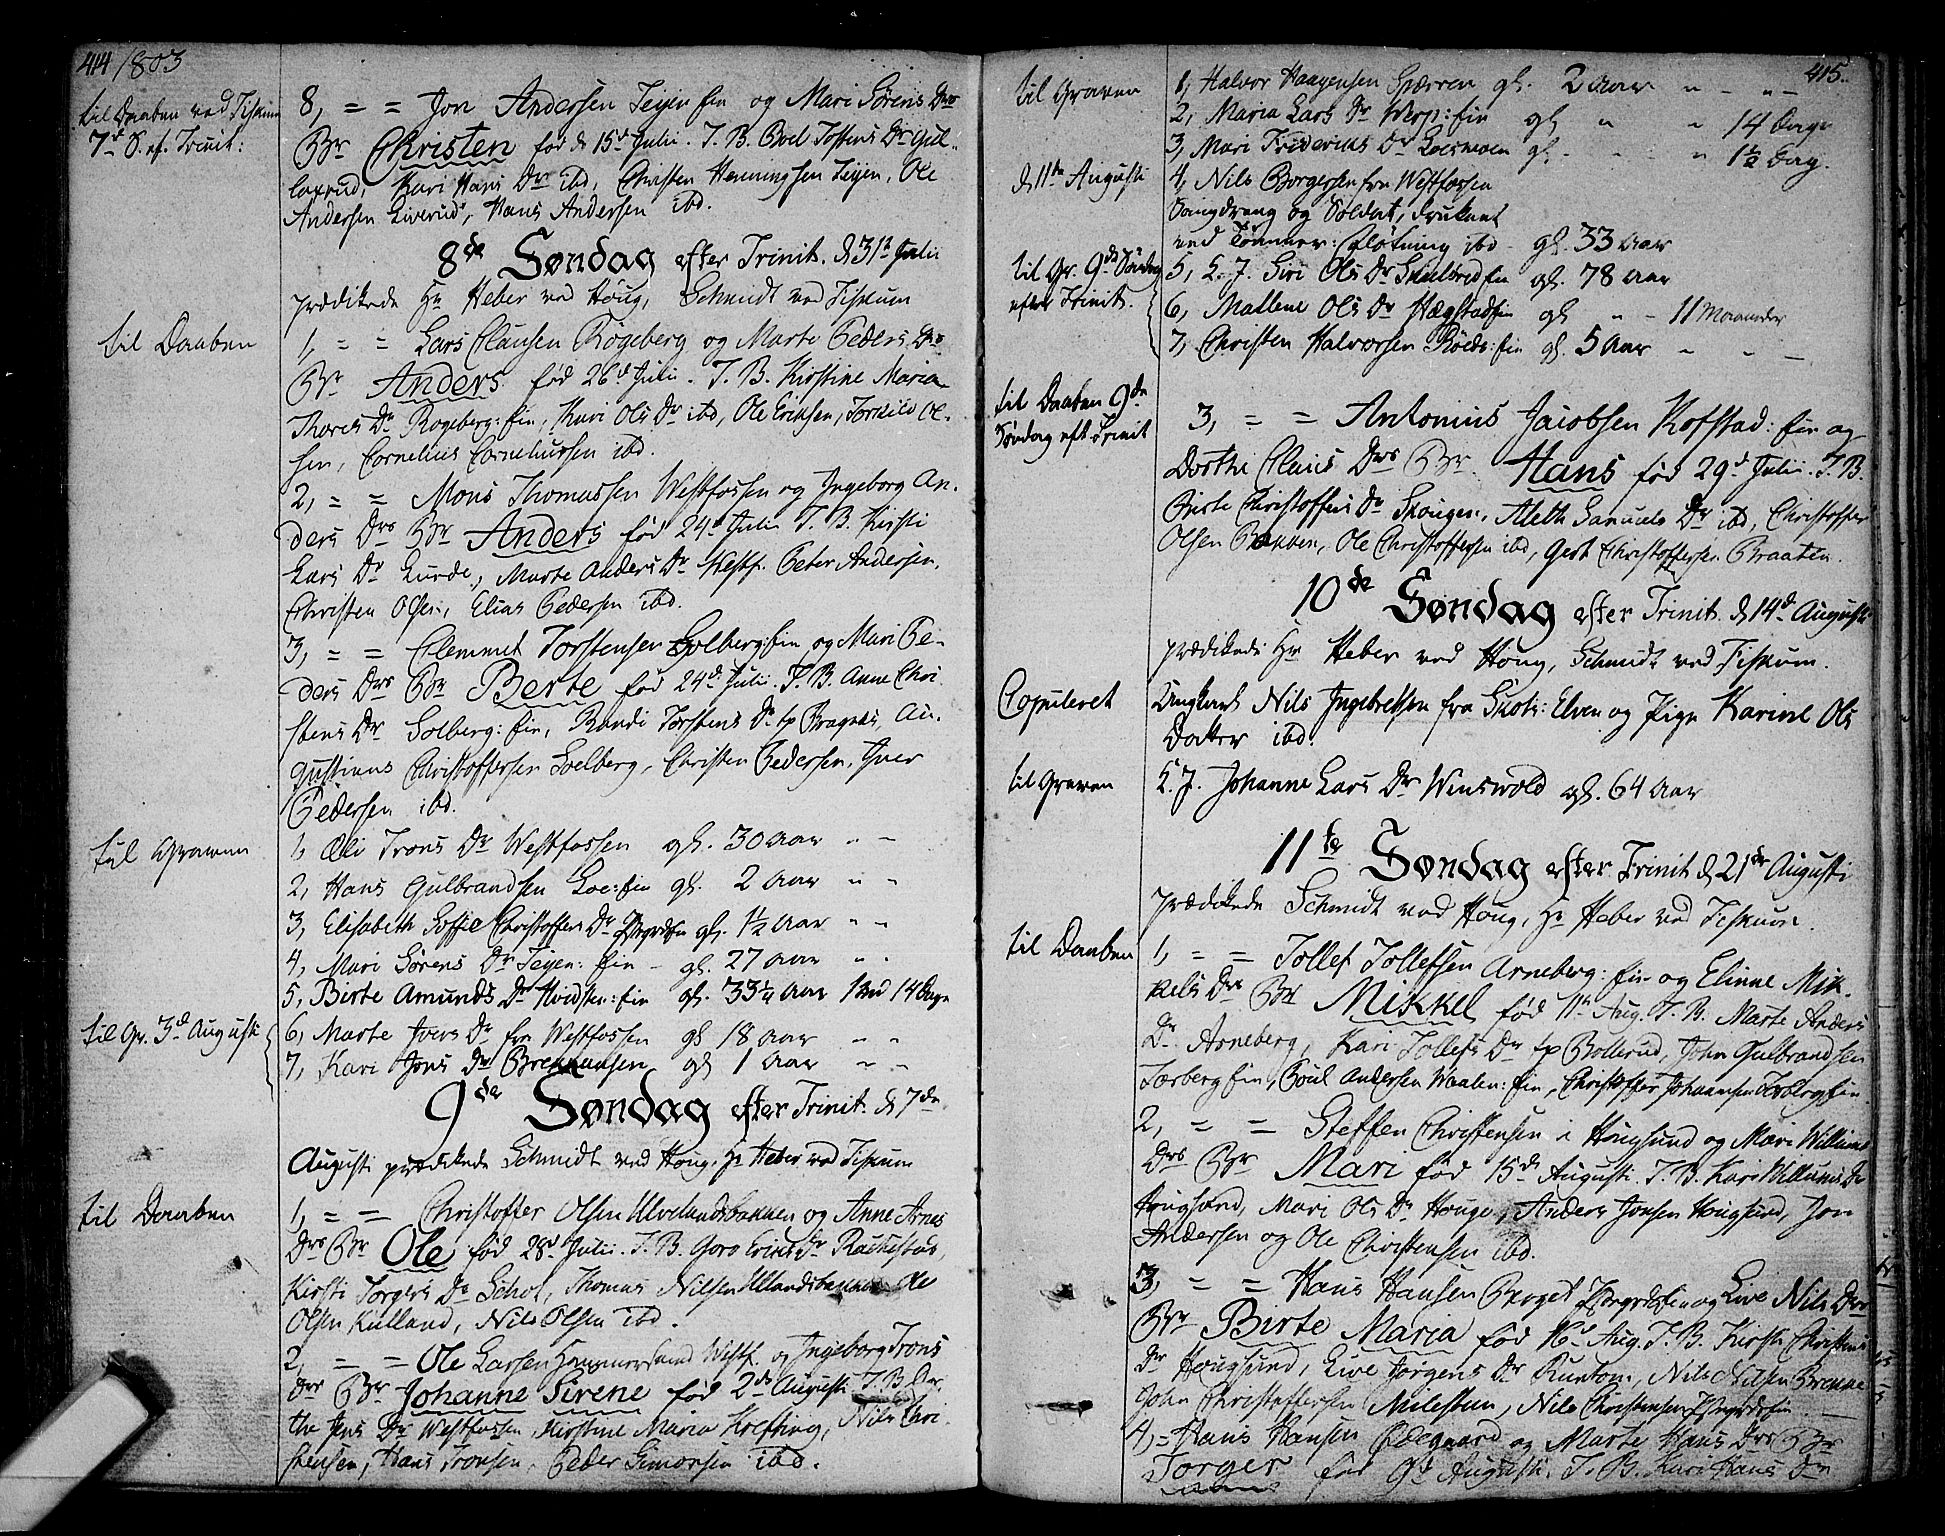 414 1803
til Daaben ved Fiskum
7de S. ef. Trinit:
8, = = Jon Andersen Teyensen og Mari Sørens Drs
Br Christen fød d 15de Julii. T. B. Boel Toffens Dr Gul-
laxrud, Kari Hans Dr ibd, Christen Henningsen Teyen, Ole
Andersen Liverud, Hans Andersen ibd.
8de Søndag efter Trinit. d 31te Julii
prædikede Hr Heber ved Houg, Schmidt ved Fiskum
til Daaben
1, = = Lars Clausen Røgeberg og Marte Peders Drs
Br Anders fød 26de Julii. T. B. Kirstine Maria
Thores Dr Rogeberg: fin, Kari Ols Dr ibd, Ole Eriksen, Torkild Ol-
sen, Cornelius Corneliussen ibd.
2, = = Mons Thomassen Westfossen og Ingeborg An-
ders Drs Br Anders fød 24de Julii T. B. Kirsti
Lars Dr Lurde, Marte Anders Dr Westf. Peter Andersen,
Christen Olsen, Elias Pedersen ibd.
3, = = Clemmet Torstensen Solberg: fin og Mari Pe-
ders Drs Br Berte fød 24de Julii. T. B. Anne Chri-
stens Dr Solberg: fin, Randi Torstens Dr tp Bragnæs, Au-
gustinus Christoffersen Soelberg, Christen Pedersen, Iver
Pedersen ibd.
til Graven
1, Oli Trons Dr Westfossen gl. 30 Aar " -
2, Hans Gulbrandsen Loe: fin gl. 2 Aar " "
3, Elisabeth Soffie Christoffers Dr gl. 1½ Aar " "
4, Mari Sørens Dr Teyen: fin - gl. 27 Aar " "
5, Birte Amunds Dr Hvidsten: fin gl. 33¼ Aar 14 Dage
til Gr. 3de Augusti
6, Marte Ivers Dr fra Westfossen gl 18 Aar " -
7, Kari Jons Dr Brekkausen gl 1 Aar " -
9de Søndag efter Trinit. d 7de
Augusti prædikede Schmidt ved Houg. Hr Heber ved Fiskum
til Daaben
1, = = Christoffer Olsen Ulvelandsbakken og Anne Arnes
Drs Br Ole fød 28de Julii. T. B. Goro Erics Dr Rackestad,
Kirsti Torgers Dr Schol, Thomas Nilsen Ullandsbakken Ole
Olsen Kulland, Nils Olsen ibd.
2, = = Ole Larsen Hammersand Westf. og Ingeborg Trons
Drs Br Johanne Sirene fød 2de Augusti T. B. Dor-
the Jens Dr Westfossen, Kirstine Maria Krefting, Nils Chri-
stensen, Hans Tronsen, Peder Simonsen ibd.
415.
til Graven
1, Halvor Haagensen Spærren gl. 2 Aar " - " -
2, Maria Lars Dr Werp: fin gl " " 14 Dage
3, Mari Fridericks Dr Loesmoen gl. - - " 1½ Dag.
d 11te Augusti
4, Nils Borgersen fra Westfossen
Saugdreng og Soldat, druknet
ved Tømmer: Fløtning ibd - gl. 33 Aar
til Gr. 9de Søndag
efter Trinit.
5, L. J. Siri Ols Dr gl. 78 Aar
6, Mallene Ols Dr Hægstad: fin gl " - 11 Maaneder
7, Christen Halvorsen Røeds: fin gl. 5 Aar " - -
til Daaben 9de
Søndag eft Trinit
3, = = Antonius Jacobsen Kofstad: fin og
Dorthe Claus Drs Br Hans fød 29de Julii. T. B.
Birte Christoffers Dr Skougen, Aleth Samuels Dr ibd, Christoffer
Olsen Bakken, Ole Christoffersen ibd, Gert Christoffersen Braaten.
10de Søndag efter Trinit. d 14de Augusti
prædikede Hr Heber ved Houg, Schmidt ved Fiskum.
Copuleret
Ungkarl Nils Ingebretsen fra Skots: Elven og Pige Karine Ols
Datter ibd.
til Graven
L. J. Johanne Lars Dr Winswold gl. 64 Aar
11te Søndag efter Trinit d 21de Augusti
prædikede Schmidt ved Houg, Hr Heber ved Fiskum.
til Daaben
1, = = Tollef Tollefsen Arneberg: fin og Elinne Mik-
kels Drs Br Mikkel fød 11te Aug. T. B. Marte Anders
Dr Arneberg, Kari Tollefs Dr tp Bollerud, John Gulbrandsen
Torberg fin, Poul Andersen Waalen: fin, Christoffer Johannsen fin
2, = = Steffen Christensen i Hougsund og Mari Willums
Drs Br Mari fød 15de Augusti. T. B. Kari Willums Dr
Hougsund, Mari Ols Dr Houge, Anders Jonsen Hougsund, Jon
Andersen og Ole Christensen ibd.
3, = = Hans Hansen og Live Nils Drs
Br Birte Maria fød 16de Aug. T. B. Kirsti Christens
Dr Hougsund, Live Jørgens Dr Runtom, Nils Nilsen Brekke
John Christoffersen Milestuen, Nils Christensen
4, = Hans Hansen Ødegaard og Marte Hans Drs Br
Torger fød 9de Augusti. T. B. Kari Hans Dr